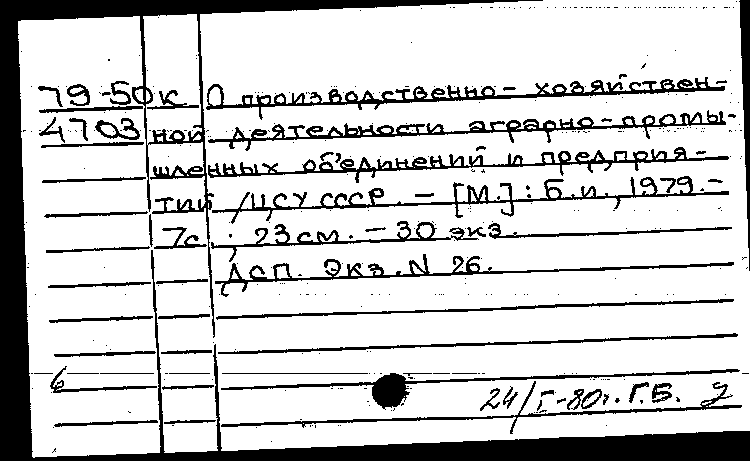 79-50к О производственно-хозяйствен-
4703 ной деятельности аграрно-промы-
шленных объединений и предприя-
тий /ЦСУ СССР. – [М.] : Б.и., 1979.–
7с. ; 23см. – 30 экз.
ДСП. Экз. N 26.
6
24/I-80г. Г.Б.